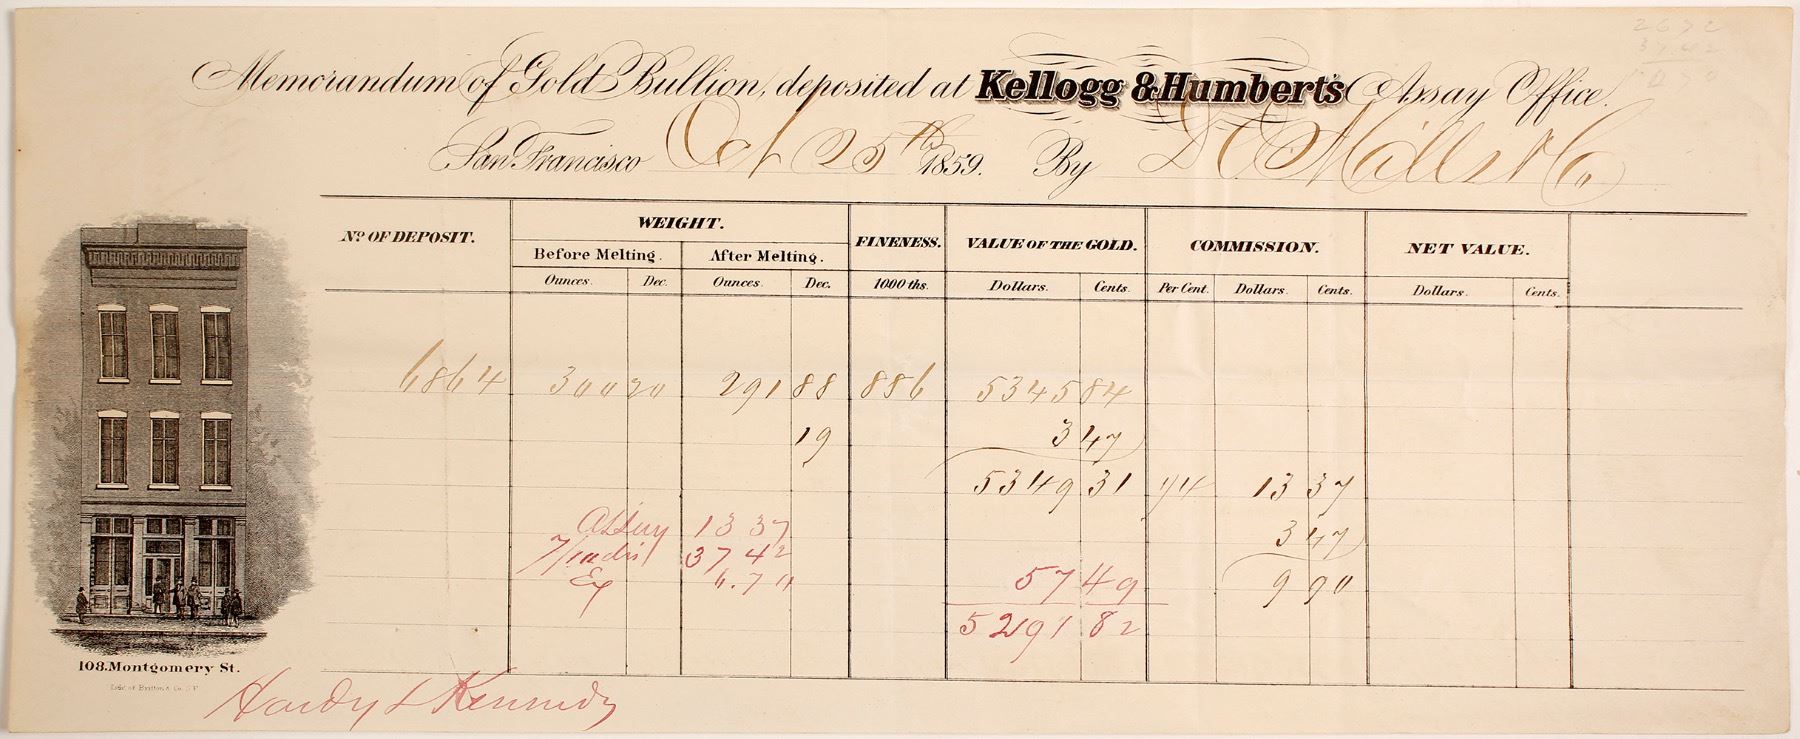 2672
3742
1070
Memorandum of Gold Bullion, deposited at Kellogg & Humbert's Assay Office.
San Francisco Oct 25th 1859. By D O Mills & Co
No. OF DEPOSIT. WEIGHT. FINENESS. VALUE OF THE GOLD. COMMISSION. NET VALUE.
Before Melting. After Melting.
Ounces. Dec. Ounces. Dec. 1000 ths. Dollars. Cents. Per Cent. Dollars. Cents. Dollars. Cents.
6864 300 20 291 88 886 5345 84
19 3 47
5349 31 1/4 13 37
Assay 13 37 3 47
37 42
Ex 6.70 57 49 9 90
5291 82
108. Montgomery St.
Lith. of Britton & Co. S.F.
Hardy & Kennedy